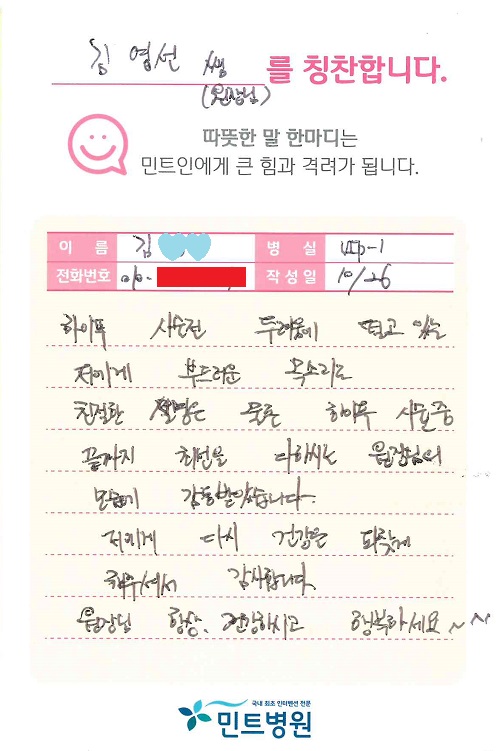 김영선 쌤 를 칭찬합니다.
(원장님)
따뜻한 말 한마디는
민트인에게 큰 힘과 격려가 됩니다.
이 름 김 병 실 VIP-1
전화번호 010- 작성일 10/26
하이푸 시술전 두려움에 떨고 있는
저에게 부드러운 목소리로
친절한 설명은 물론 하이푸 시술중
끝까지 최선을 다하시는 원장님의
모습에 감동받았습니다.
저에게 다시 건강을 되찾게
해주셔서 감사합니다.
원장님 항상, 건강하시고 행복하세요~~
국내 최초 인터벤션 전문
민트병원